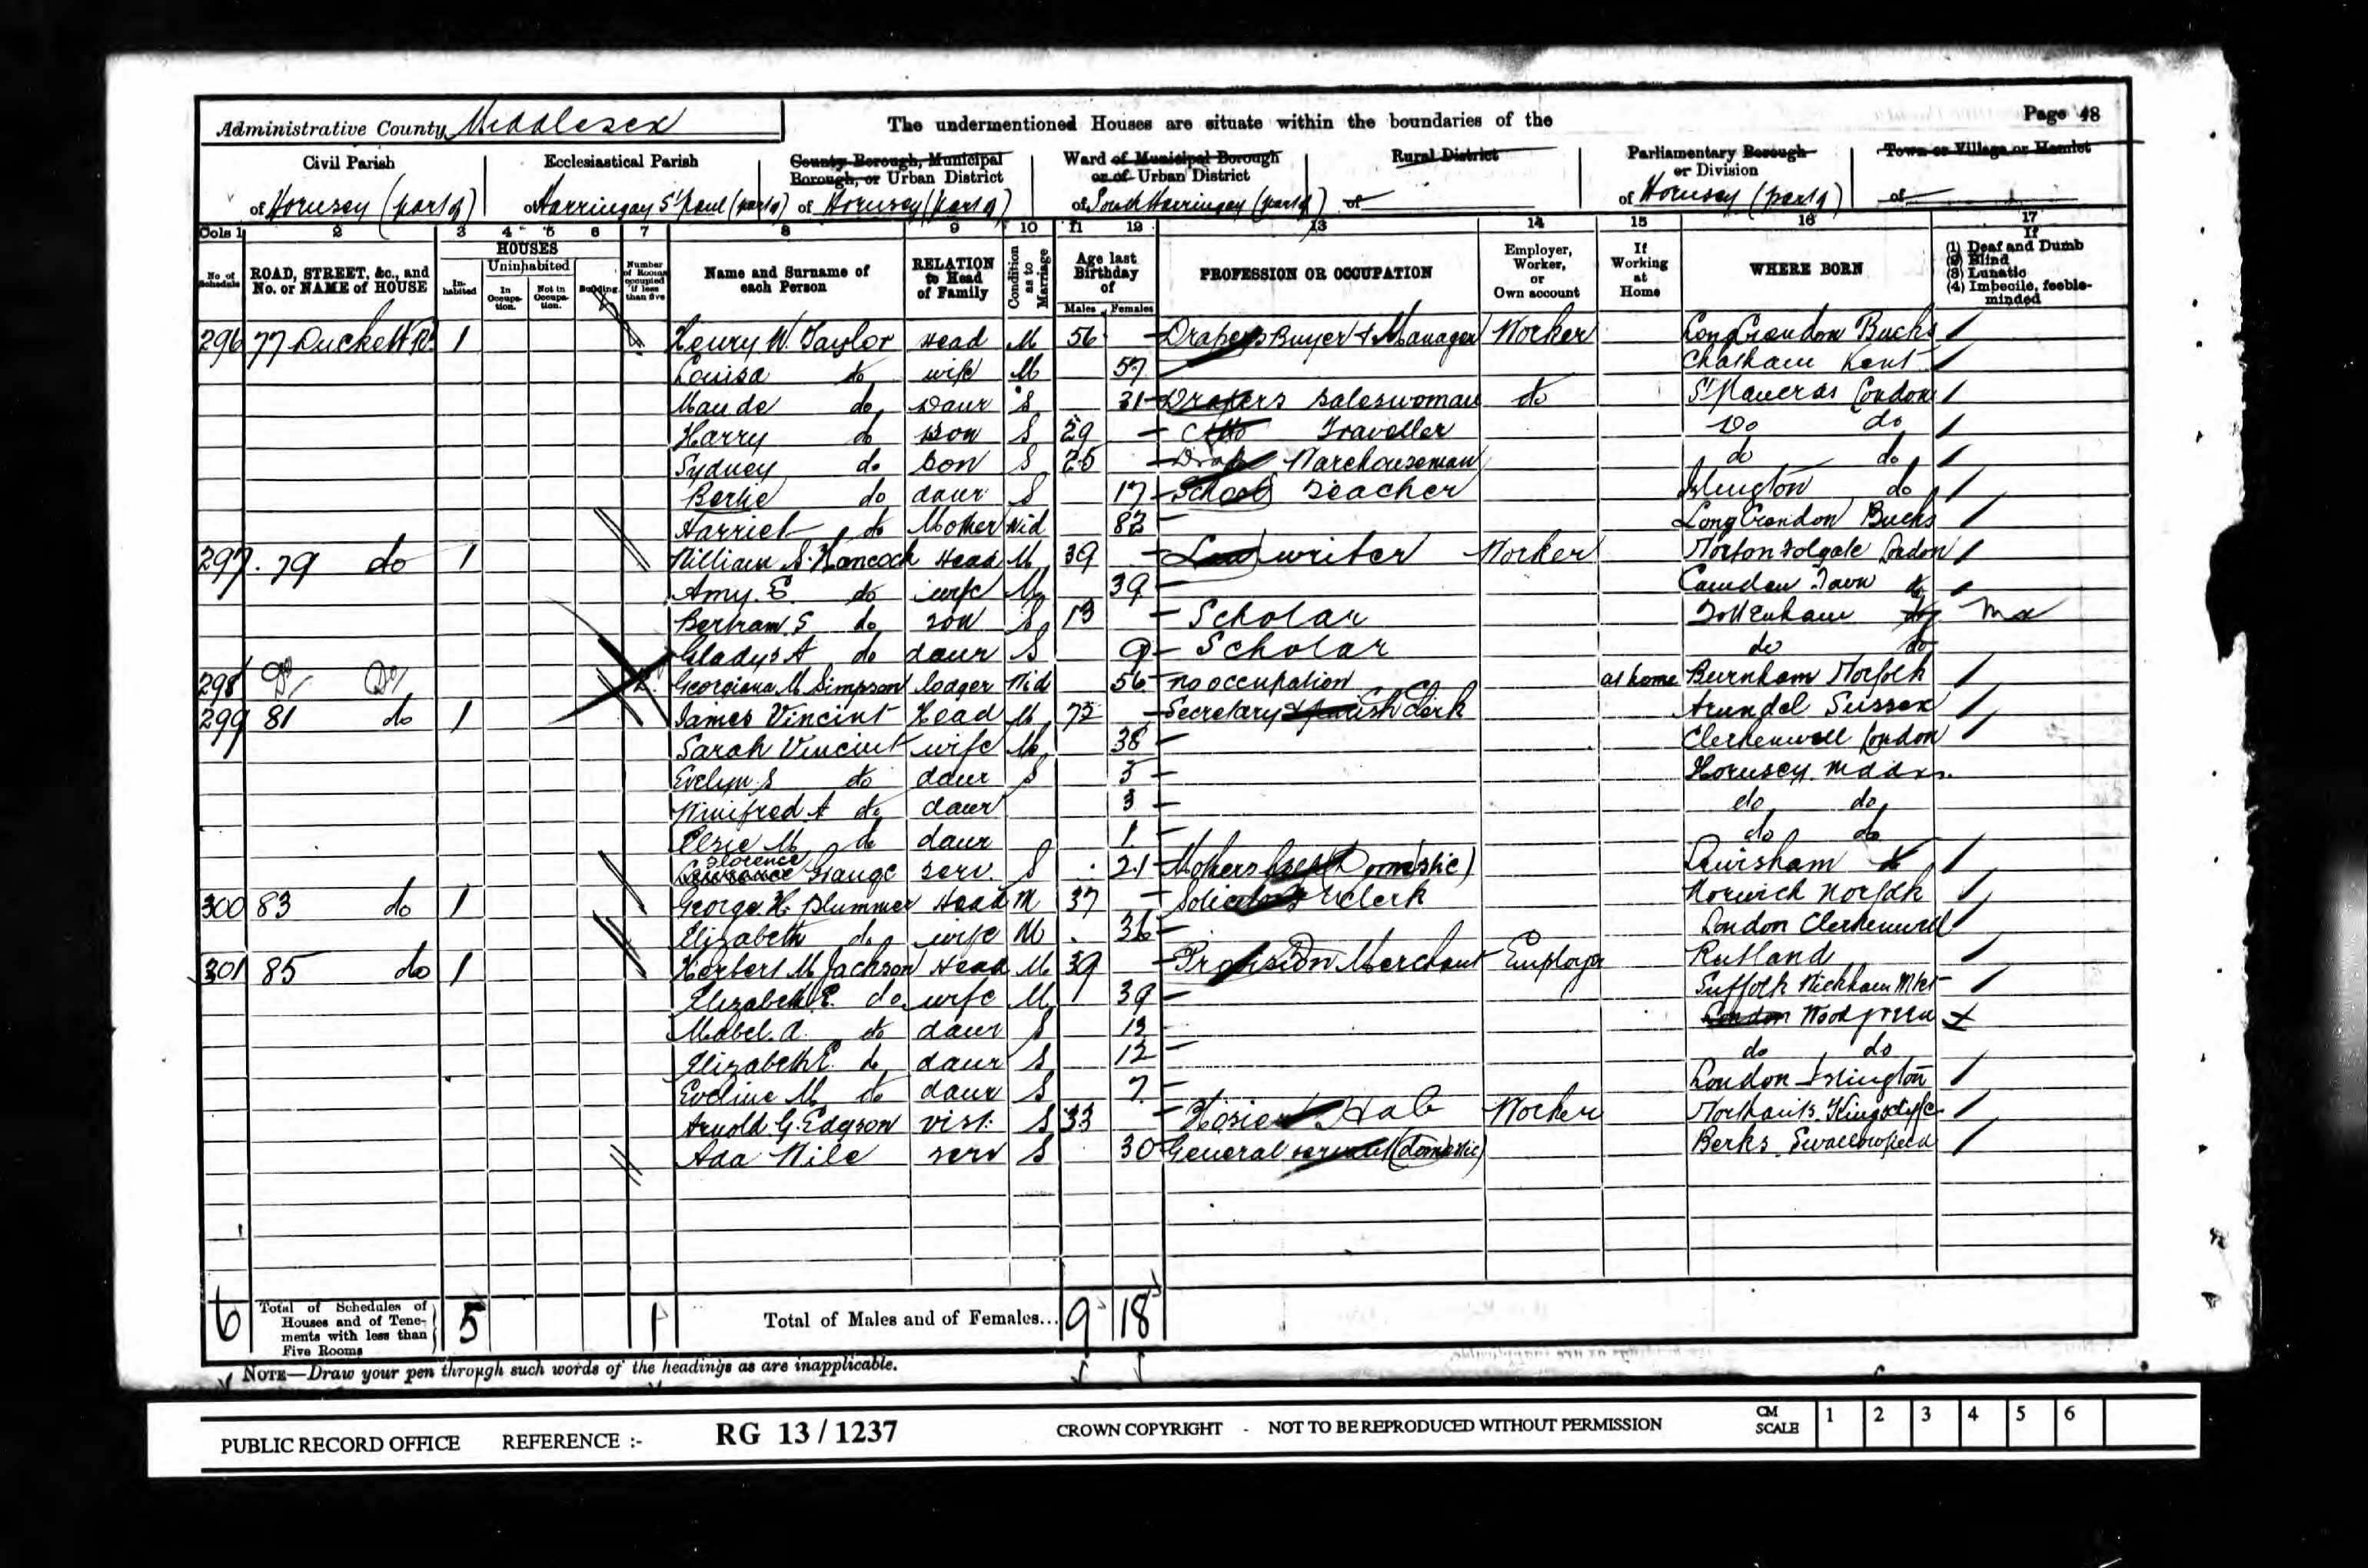 Administrative County Middlesex
The undermentioned Houses are situate within the boundaries of the
Page 48
Civil Parish of Hornsey (part of)
Ecclesiastical Parish of Harringay St Paul (part of)
County Borough, Municipal Borough, or Urban District of Hornsey (part of)
Ward of Municipal Borough or of Urban District of South Harringay (part of)
Rural District of
Parliamentary Borough or Division of Hornsey (part of)
Town or Village or Hamlet of
Cols 1 2 3 4 5 6 7 8 9 10 11 12 13 14 15 16 17
No. of Schedule
ROAD, STREET, &c., and No. or NAME of HOUSE
HOUSES
Inhabited
Uninhabited
In Occupation.
Not in Occupation.
Building
Number of Rooms occupied if less than five
Name and Surname of each Person
RELATION to Head of Family
Condition as to Marriage
Age last Birthday of
Males Females
PROFESSION OR OCCUPATION
Employer, Worker, or Own account
If Working at Home
WHERE BORN
If (1) Deaf and Dumb (2) Blind (3) Lunatic (4) Imbecile, feeble-minded
296 77 Duckett Rd 1 Henry W. Taylor Head M 56 Drapers Buyer & Manager Worker Long Crendon Bucks
Louisa do wife M 57 Chatham Kent
Maude do Daur S 31 Drapers Saleswoman do St Pancras London
Harry do Son S 29 Ditto Traveller Do do
Sydney do Son S 25 Warehouseman do do
Bertie do daur S 17 School Teacher Islington do
Harriet do Mother Wid 82 Long Crendon Bucks
297 79 do 1 William S. Hancock Head M 39 writer Worker Norton Folgate London
Amy. E. do wife M 39 Camden Town do
Bertram. S do son S 13 Scholar Tottenham do Mx
Gladys A do daur S 9 Scholar do do
298 Do Do Georgiana M Simpson lodger Wid 56 no occupation at home Burnham Norfolk
299 81 do 1 James Vincint Head M 72 Secretary & parish Clerk Arundel Sussex
Sarah Vincint wife M 38 Clerkenwell London
Evelyn S do daur S 5 Hornsey Middx.
Winifred A do daur 3 do do
Elsie M do daur 1 do do
Florence Grange serv. S 21 Mothers help (Domestic) Lewisham
300 83 do 1 George H. Plummer Head M 37 Solicitors Clerk Norwich Norfolk
Elizabeth do wife M 36 London Clerkenwell
301 85 do 1 Herbert M Jackson Head M 39 Provision Merchant Employer Rutland
Elizabeth E. do wife M 39 Suffolk Wickham Mkt
Mabel. A. do daur S 13 London Wood green
Elizabeth E. do daur S 12 do do
Eveline M do daur S 7 London Islington
Arnold G. Edgson vist. S 33 Hosier Hab Worker Northants. Kingscliffe
Ada Wile serv S 30 General servant (domestic) Berks Swallowfield
6 Total of Schedules of Houses and of Tenements with less than Five Rooms 5 1 Total of Males and of Females... 9 18
NOTE—Draw your pen through such words of the headings as are inapplicable.
PUBLIC RECORD OFFICE REFERENCE :- RG 13 / 1237 CROWN COPYRIGHT - NOT TO BE REPRODUCED WITHOUT PERMISSION CM SCALE 1 2 3 4 5 6